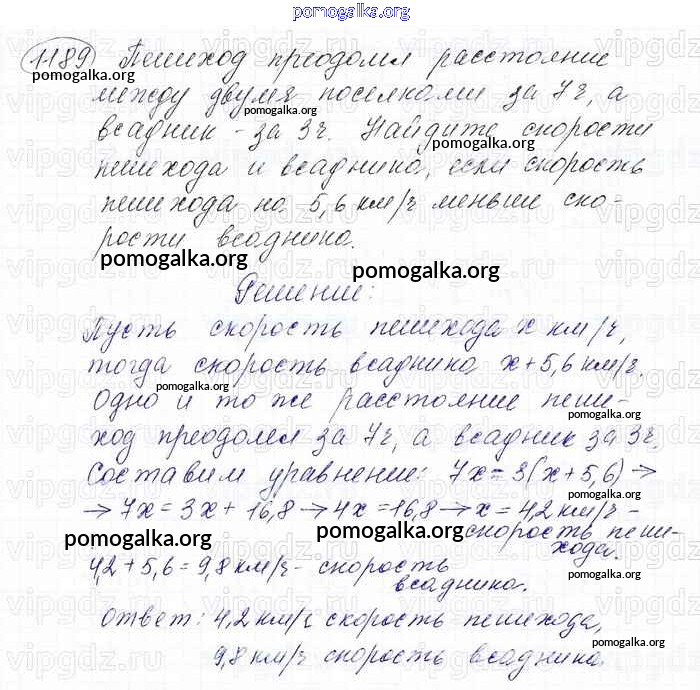 pomogalka.org
1189 Пешеход преодолел расстояние
pomogalka.org
между двумя поселками за 7 ч, а
pomogalka.org
всадник - за 3 ч. Найдите скорости
пешехода и всадника, если скорость
пешехода на 5,6 км/ч меньше ско-
рости всадника.
pomogalka.org
pomogalka.org
Решение:
Пусть скорость пешехода x км/ч,
pomogalka.org
тогда скорость всадника x+5,6 км/ч.
pomogalka.org
Одно и то же расстояние пеше-
pomogalka.org
ход преодолел за 7 ч, а всадник за 3 ч.
Составим уравнение: 7x = 3(x+5,6) →
pomogalka.org
→ 7x = 3x + 16,8 → 4x = 16,8 → x = 4,2 км/ч -
pomogalka.org
pomogalka.org
скорость пеше-
хода.
4,2 + 5,6 = 9,8 км/ч - скорость
pomogalka.org
всадника.
Ответ: 4,2 км/ч скорость пешехода,
pomogalka.org
9,8 км/ч скорость всадника.
pomogalka.org